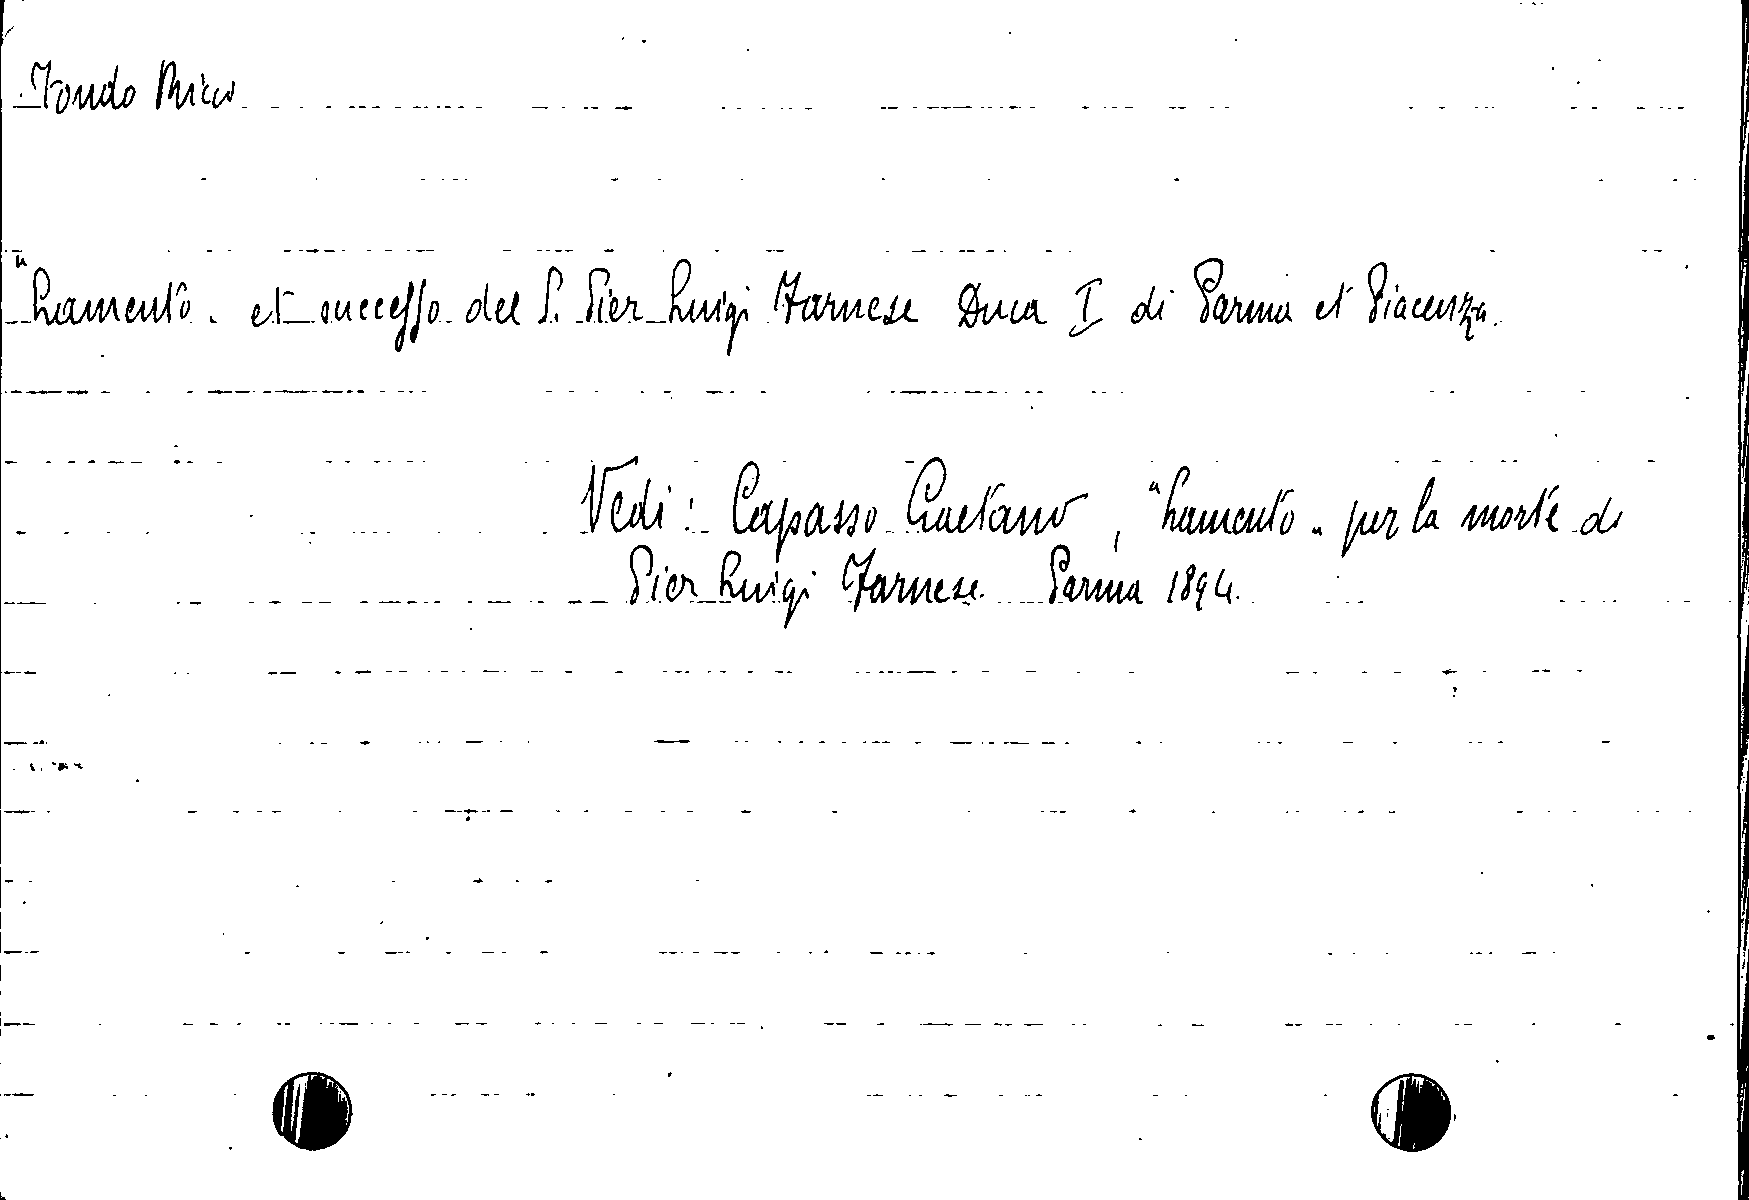 Fondo Ricci
"Lamento" et successo del S. Pier Luigi Farnese Duca I di Parma et Piacenza.
Vedi: Capasso Gaetano, "Lamento" per la morte di
Pier Luigi Farnese. Parma 1894.